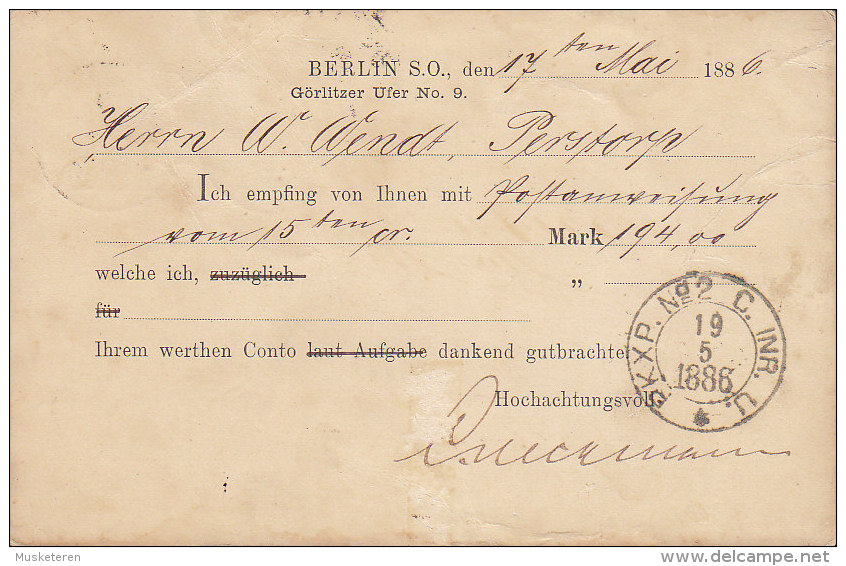 BERLIN S.O., den 17ten Mai 1886.
Görlitzer Ufer No. 9.
Herrn W. Wendt, Perstorp
Ich empfing von Ihnen mit Postanweisung
vom 15ten cr. Mark 194,00
welche ich, zuzüglich „
für
Ihrem werthen Conto laut Aufgabe dankend gutbrachte
Hochachtungsvoll
PKXP. No 2 C. INR. U.
19
5
1886
Musketeren
delcampe.net